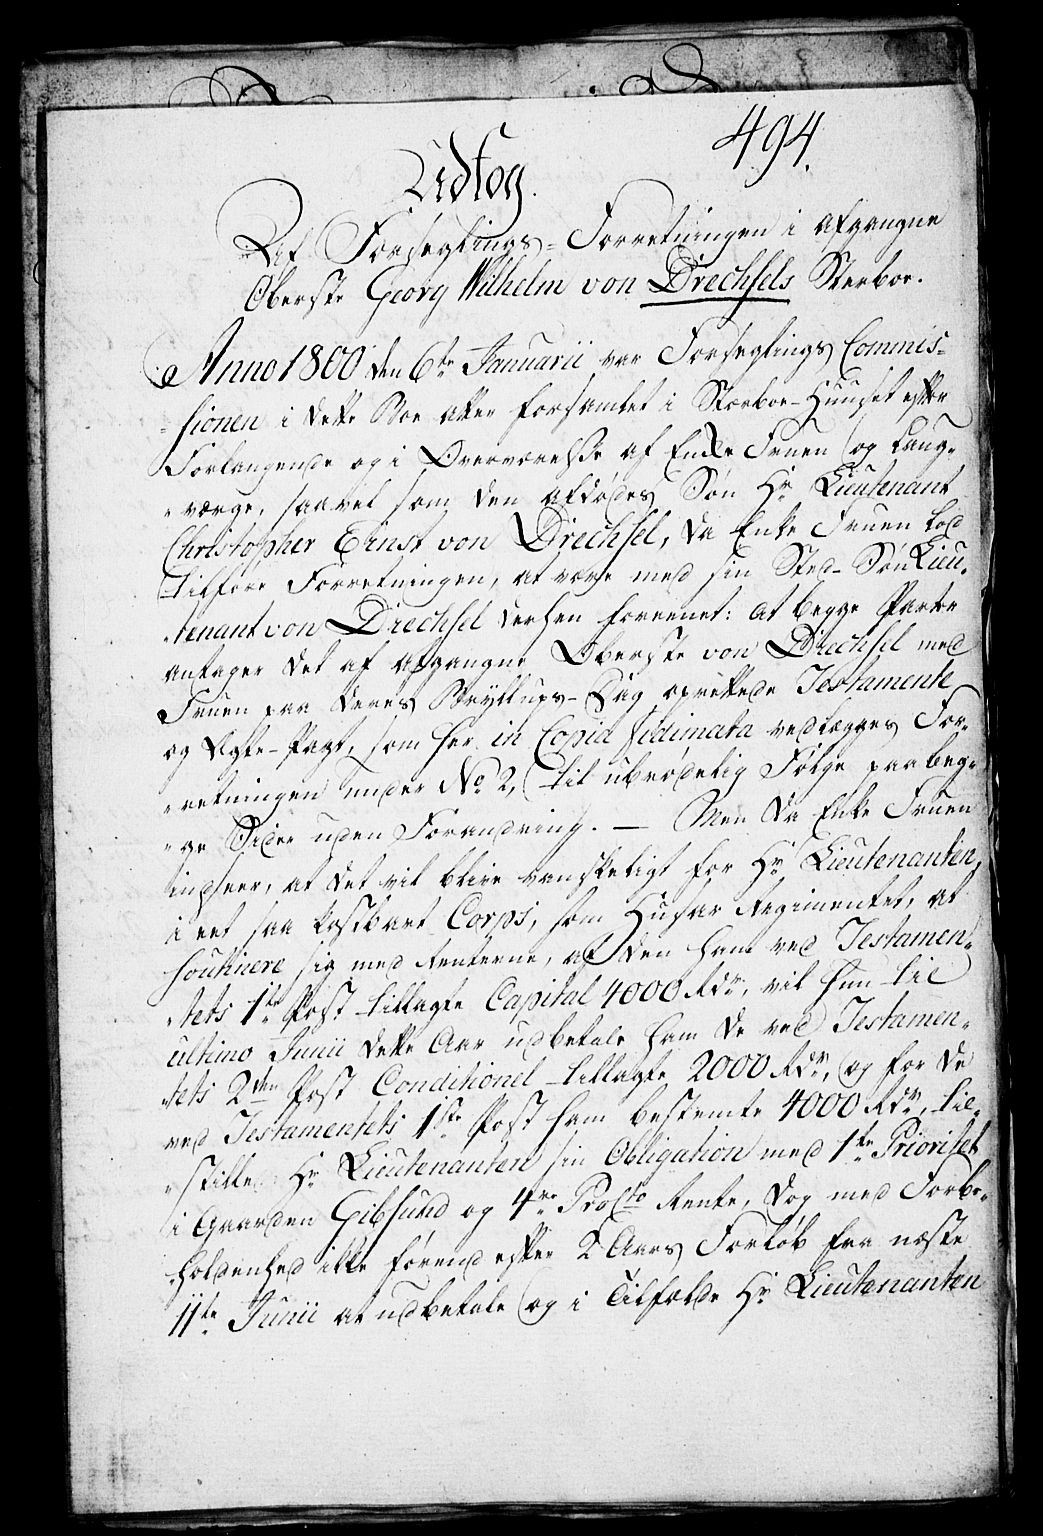 494.
Udtog.
Af Forseglings-Forretningen i afgangne
Oberste Georg Wilhelm von Drechsels Sterboe.
Anno 1800 den 6te Januarii var Forseglings Commis-
-sionen i dette Boe atter forsamlet i Sterboe-Huuset efter
Forlangende og i Overværelse af Enke Fruen og Laug-
-værge, saavel som den afdødes Søn Hr Lieutenant
Christopher Ernst von Drechsel, da Enke Fruen lod
tilføre Forretningen, at være med sin Sted-Søn Lieu-
-tenant von Drechsel derhen foreenet: at begge Parter
antager det af afgangne Oberste von Drechsel med
Fruen paa deres Bryllups-Dag oprettede Testamente
og Ægte-Pagt, som her in Copia fidimata vedlægges For-
-retningen under No 2, til ubrødelig Følge paa beg-
-ge Sider uden Forandring. — Men da Enke Fruen
indseer, at det vil blive vanskeligt for Hr Lieutenanten,
i eet saa kostbart Corps, som Husar Regimentet, at
soutinere sig med Renterne, af den ham ved Testamen-
-tets 1te Post tillagte Capital 4000 Rdr, vil hun til
ultimo Junii dette Aar udbetale ham de ved Testamen-
-tets 2den Post Conditionel tillagte 2000 Rdr, og for de
ved Testamentets 1ste Post ham bestemte 4000 Rdr, til-
-stiller Hr Lieutenanten sin Obligation med 1te Prioritet
i Gaarden Gibsund og 4re ProCto Rente, dog med Forbe-
-holdenhed ikke førend efter 2 Aars Forløb fra næste
11te Junii at udbetale og i Tilfælde Hr Lieutenanten